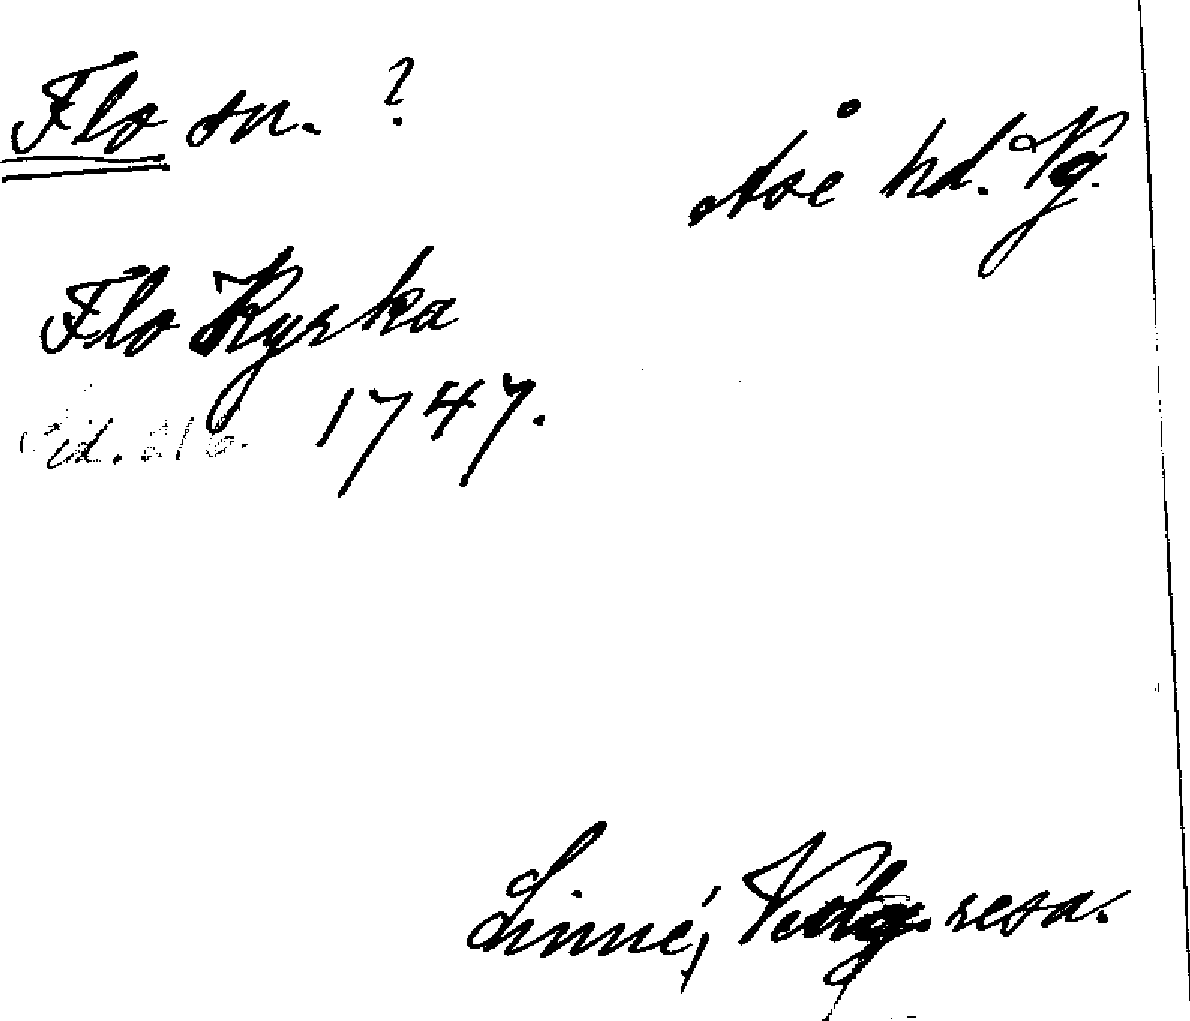 Flo sn. ?
Åse hd. Vg.
Flo Kyrka
Sid. 216. 1747.
Linné, Vestg. resa.